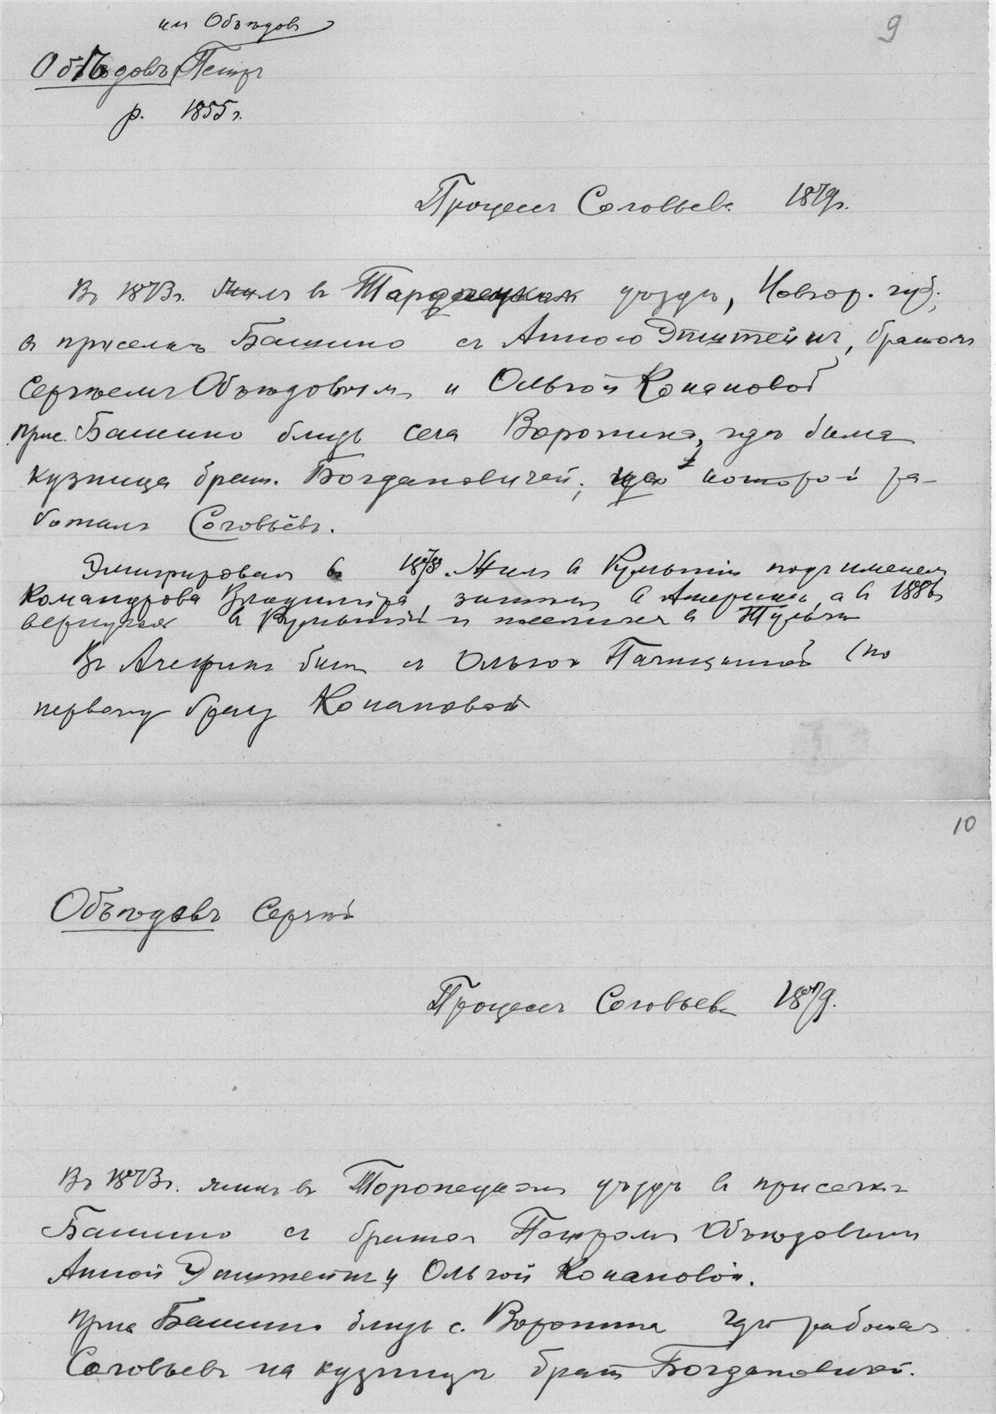 или Объѣдов
9
Обѣдовъ Петръ
р. 1855 г.
Процессъ Соловьева 1879г.
Въ 1873г. жилъ въ уѣздѣ, Новгор. губ.,
в приселкѣ Башино съ Анною Эпштейнъ, братомъ
Сергѣемъ Объѣдовымъ и Ольгой Конановой
прис. Башино близь села Воронина, гдѣ была
кузница брат. Богдановичей, в которой ра-
боталъ Соловьёвъ.
Эмигрировал в Жил в Румынии подъ именем
Командрова Владимира затем в Америкѣ, а в 1886
вернулся в Румынию и поселился в Тульчи
Въ Америкѣ был съ Ольгой (по
первому браку Конановой
10
Объѣдовъ Сергѣй
Процессъ Соловьева 1879г.
Въ 1873г. жилъ въ Торопецкомъ уѣздѣ в приселкѣ
Башино съ братом Петромъ Объѣдовымъ
Анной Эпштейнъ и Ольгой Конановой.
Прис. Башино близь с. Воронина гдѣ работал
Соловьевъ на кузницѣ брат Богдановичей.